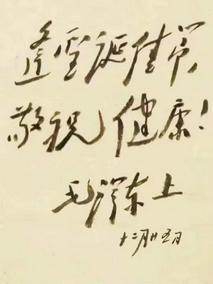 逢聖诞佳节，
敬祝健康！
毛泽东上
十二月廿五日